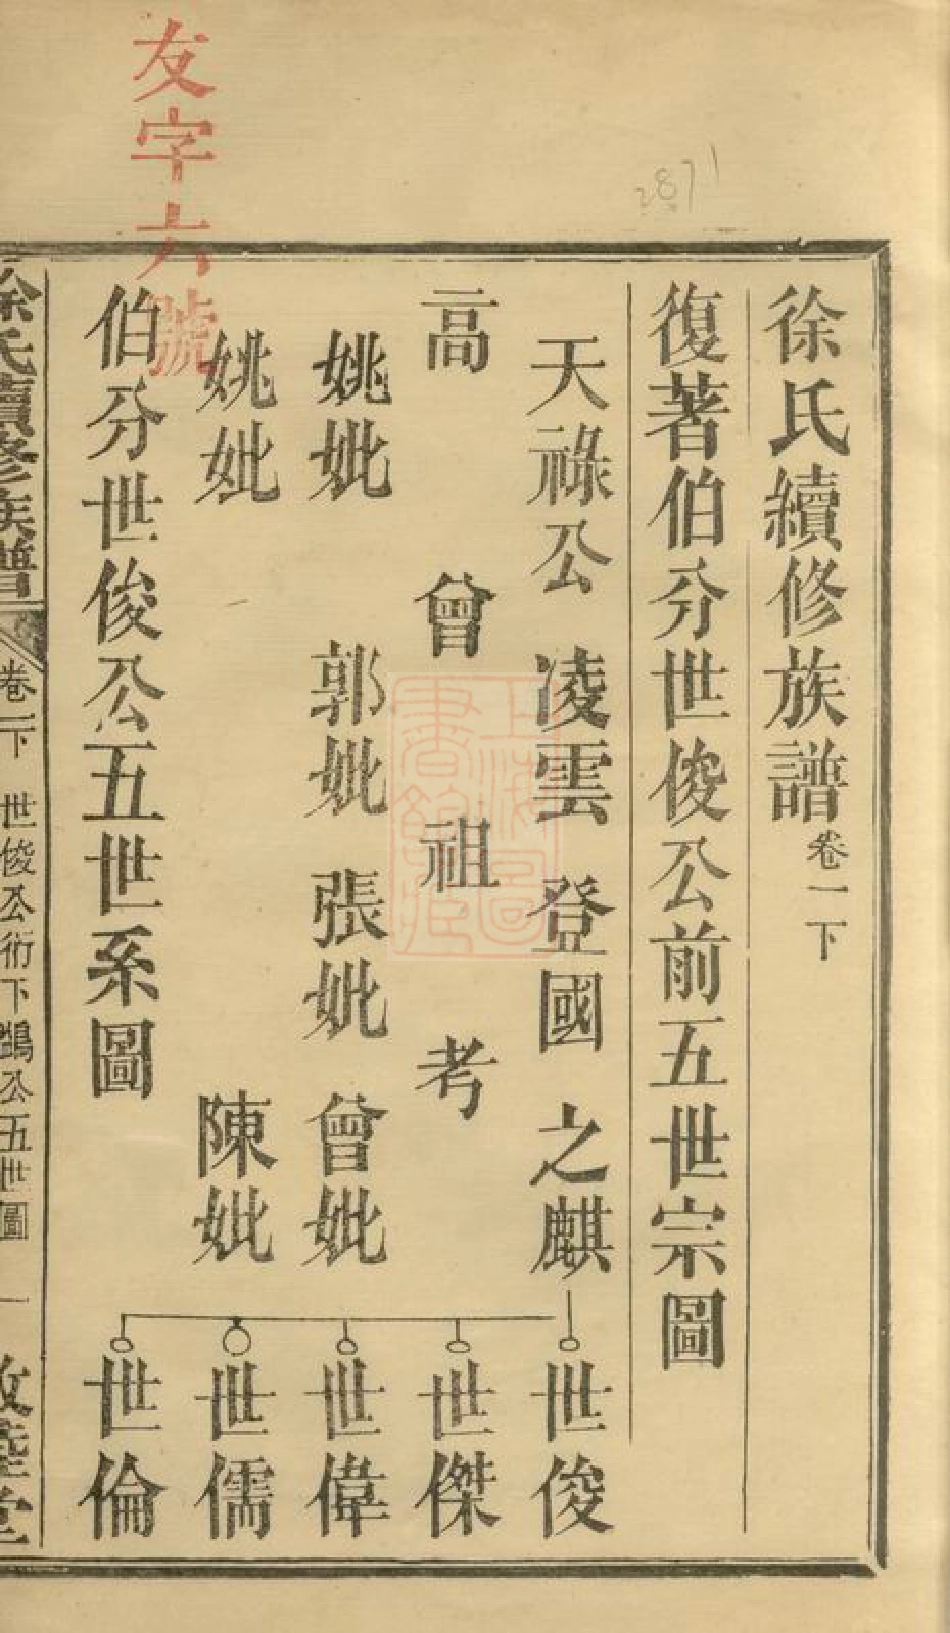 友字六號
2871
徐氏續修族譜卷一下
復著伯分世俊公前五世宗圖
天祿公 凌雲 登國 之麒 世俊
高 曾 祖 考 世傑
姚妣 郭妣 張妣 曾妣 世偉
姚妣 陳妣 世儒
伯分世俊公五世系圖 世倫
徐氏續修族譜 卷一下 世俊公衍下鵠公五世圖 一 敦睦堂
上海圖書館藏